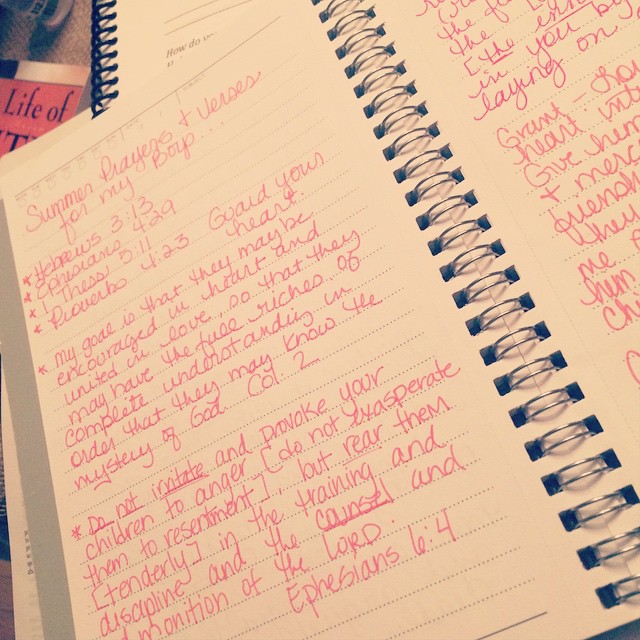 How do yo
Life of
Summer Prayers + Verses
for my Boys...
* Hebrews 3:13
* Ephesians 4:29
* 1 Thess. 5:11
* Proverbs 4:23 Guard your
heart
* my goal is that they maybe
encouraged in heart and
united in love, so that they
may have the full riches of
complete understanding in
order that they may know the
mystery of God Col. 2
* Do not irritate and provoke your
children to anger [do not exasperate
them to resentment], but rear them
[tenderly] in the training and
discipline and the counsel and
admonition of the LORD.
Ephesians 6:4
the
[the
in you by
laying on
Grant
heart int
Give them
+ merc
friensh
they
me
him
Ch